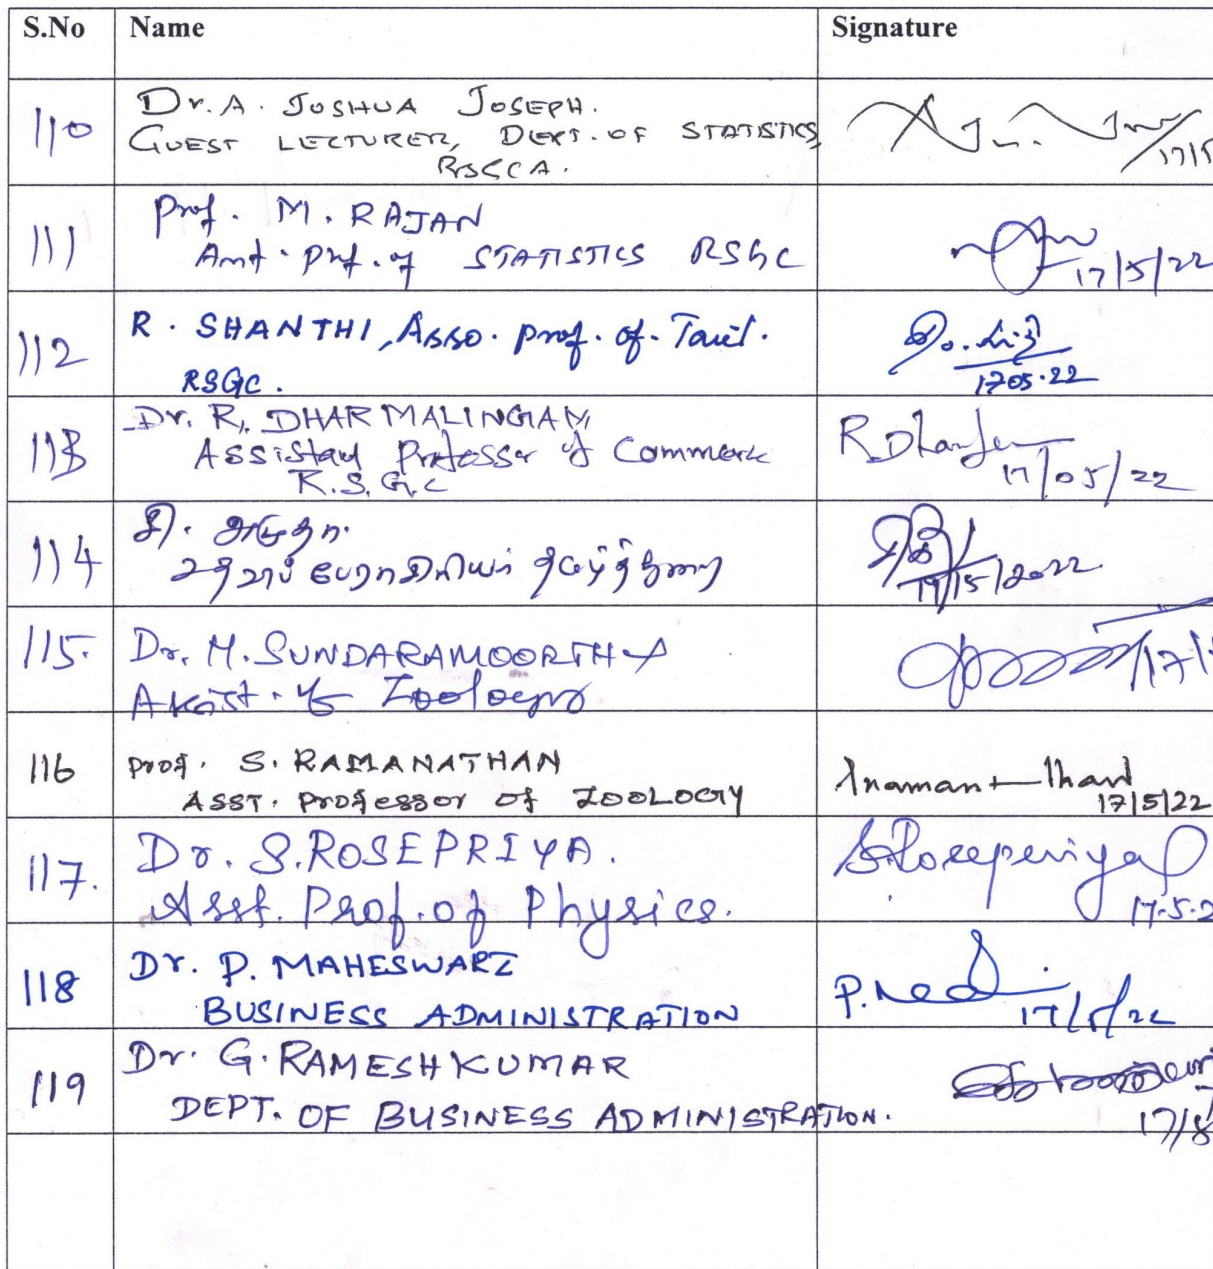 S.No Name Signature
110 Dr. A. JOSHUA JOSEPH.
GUEST LECTURER, DEPT. OF STATISTICS,
17/5
111 Prof. M. RAJAN
STATISTICS RSGC
17/5/22
112 R. SHANTHI, Asso. prof. of. Tamil.
RSGC.
17.05.22
113 Dr. R. DHARMALINGAM
Assistant Professor of Commerce
R.S.G.C
17/05/22
114 சி. அமுதா.
உதவிப் பேராசிரியர் தமிழ்த்துறை
17/5/2022
115. Dr. M. SUNDARAMOORTHY
Zoology
17/
116 Prof. S. RAMANATHAN
ASST. Professor of ZOOLOGY
17/5/22
117. Dr. S. ROSEPRIYA.
Asst. Prof. of Physics.
17.5.2
118 Dr. P. MAHESWARI
BUSINESS ADMINISTRATION
17/5/22
119 Dr. G. RAMESHKUMAR
DEPT. OF BUSINESS ADMINISTRATION.